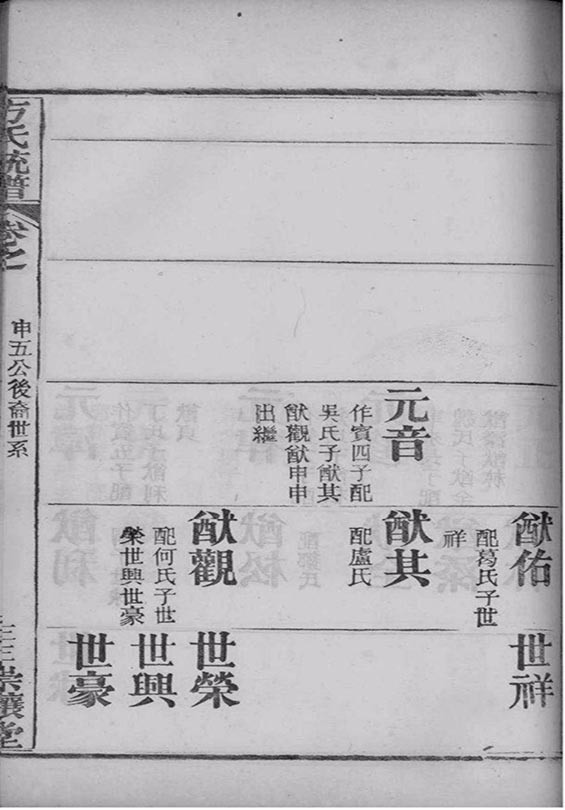 元音
作賓四子配
吳氏子猷其
猷觀猷申申
出繼
猷佑
配葛氏子世
祥
猷其
配盧氏
猷觀
配何氏子世
榮世興世豪
世祥
世榮
世興
世豪
方氏統譜
卷之
申五公後裔世系
崇讓堂